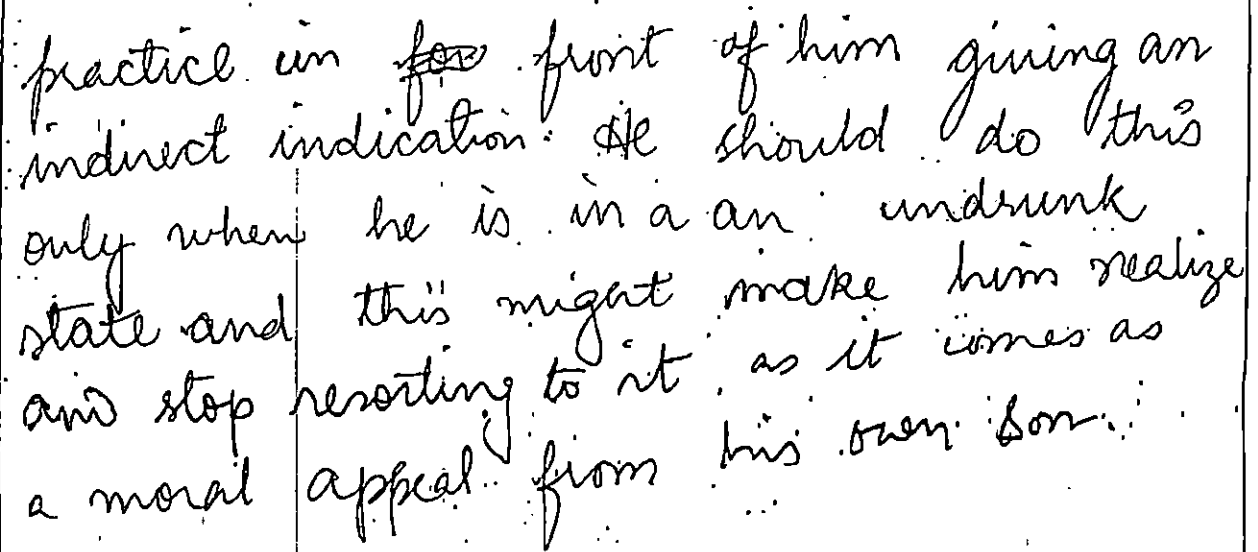 practice in for front of him giving an
indirect indication. He should do this
only when he is in a an undrunk
state and this might make him realize
and stop resorting to it, as it comes as
a moral appeal from his own son.